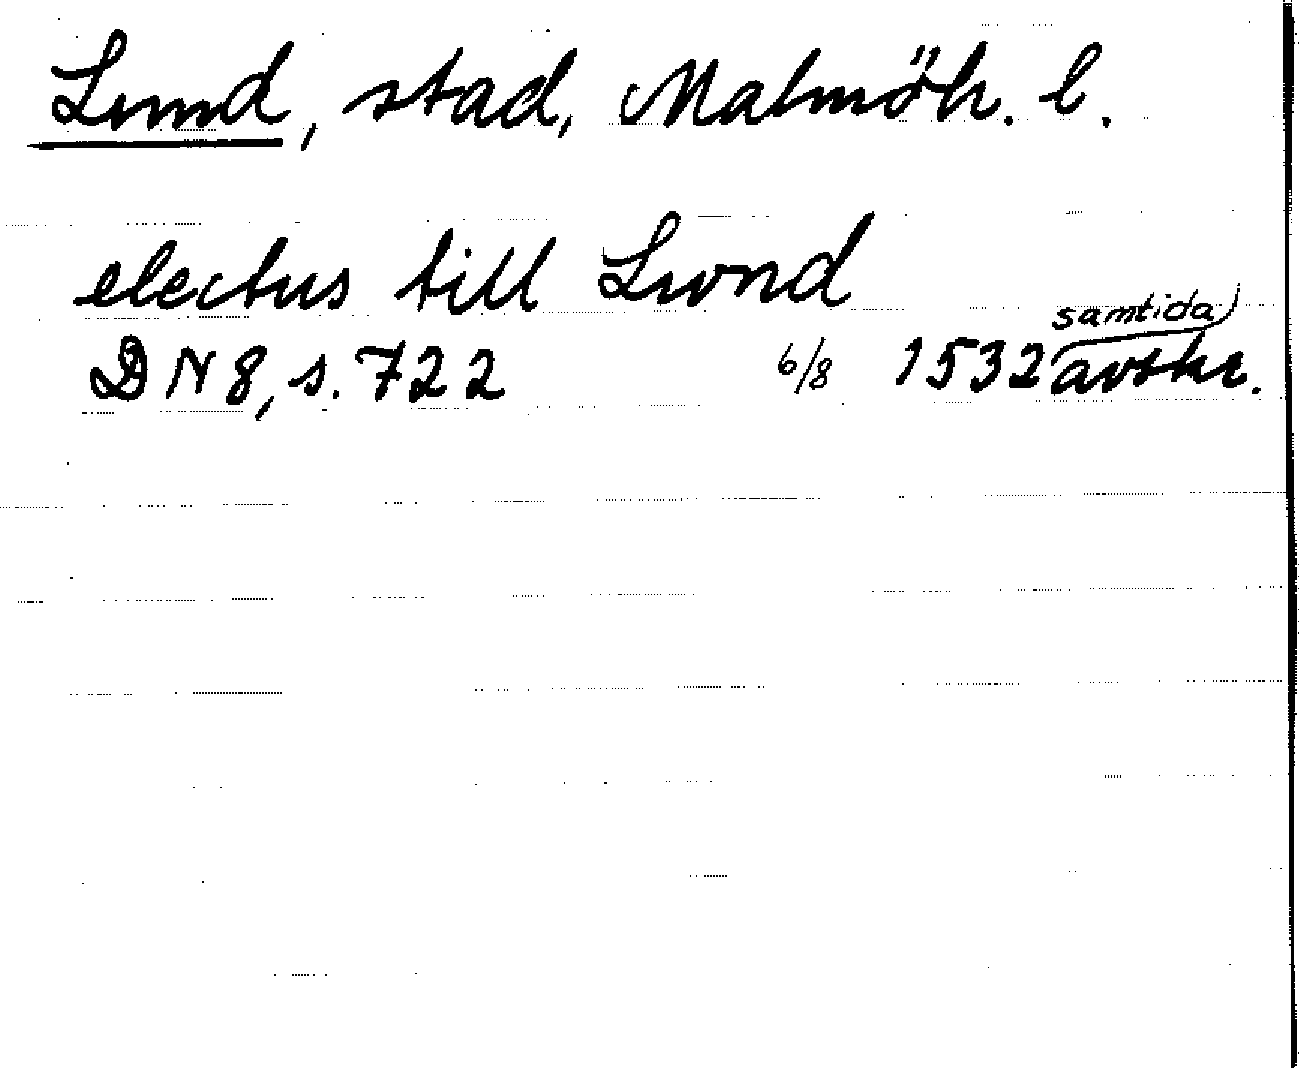 Lund, stad, Malmöh. l.
electus till Lwnd
samtida
DN 8, s. 722 6/8 1532 avskr.